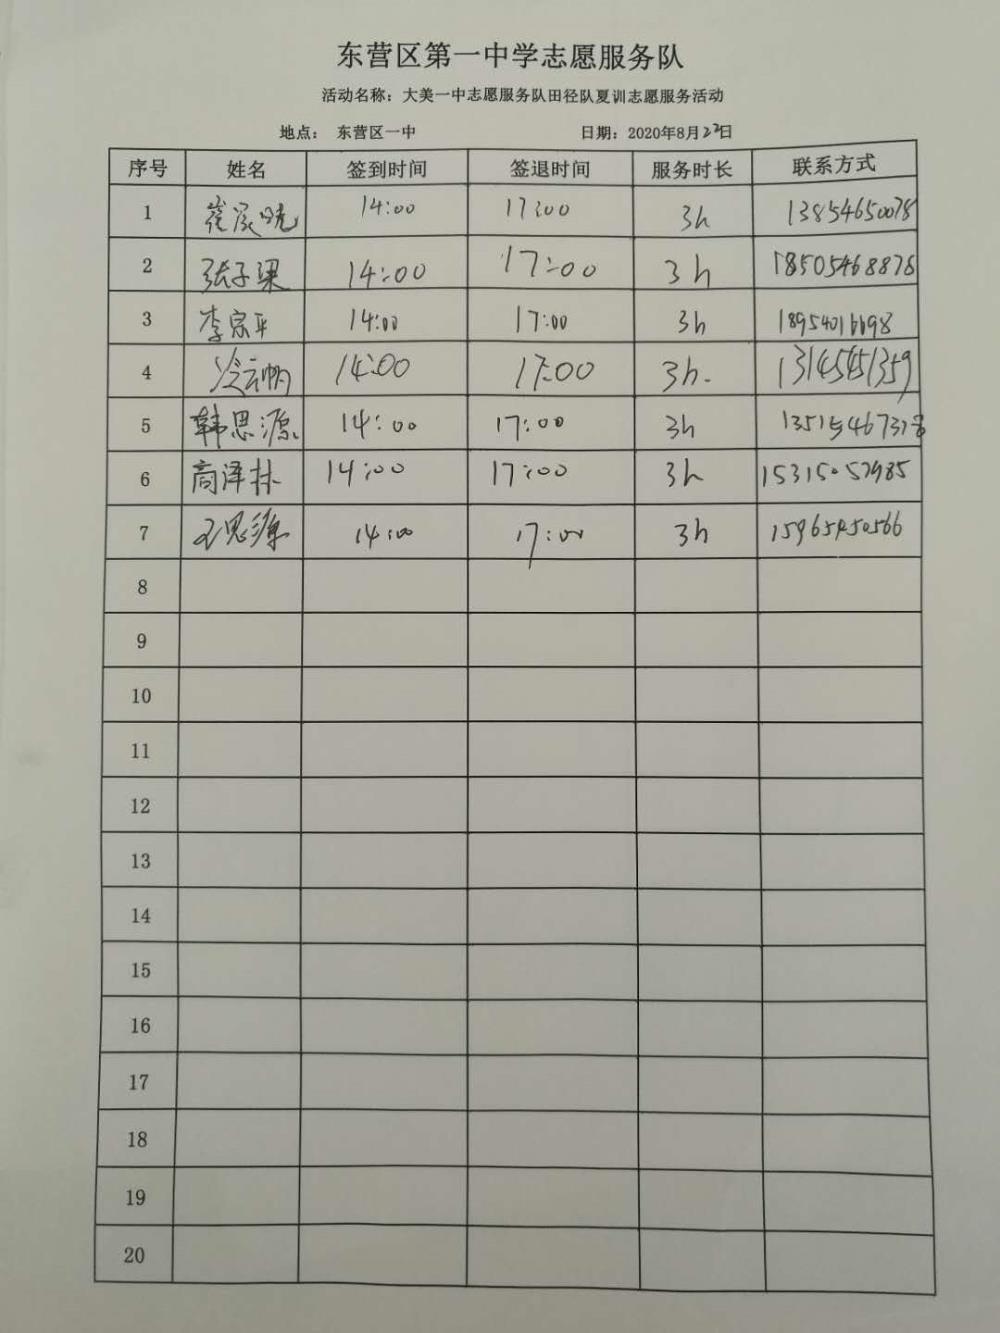 东营区第一中学志愿服务队
活动名称：大美一中志愿服务队田径队夏训志愿服务活动
地点： 东营区一中 日期：2020年8月22日
序号 姓名 签到时间 签退时间 服务时长 联系方式
1 14:00 17:00 3h 13854650078
2 张子梁 14:00 17:00 3h 18505468878
3 李宗平 14:00 17:00 3h
4 冷云帆 14:00 17:00 3h. 13145451359
5 韩思源 14:00 17:00 3h
6 高泽林 14:00 17:00 3h 15315052985
7 王思源 14:00 17:00 3h
8
9
10
11
12
13
14
15
16
17
18
19
20